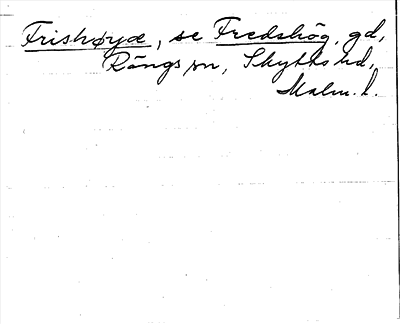 Frishøyæ, se Fredshög, gd,
Rängs sn, Skytts hd,
Malm. l.